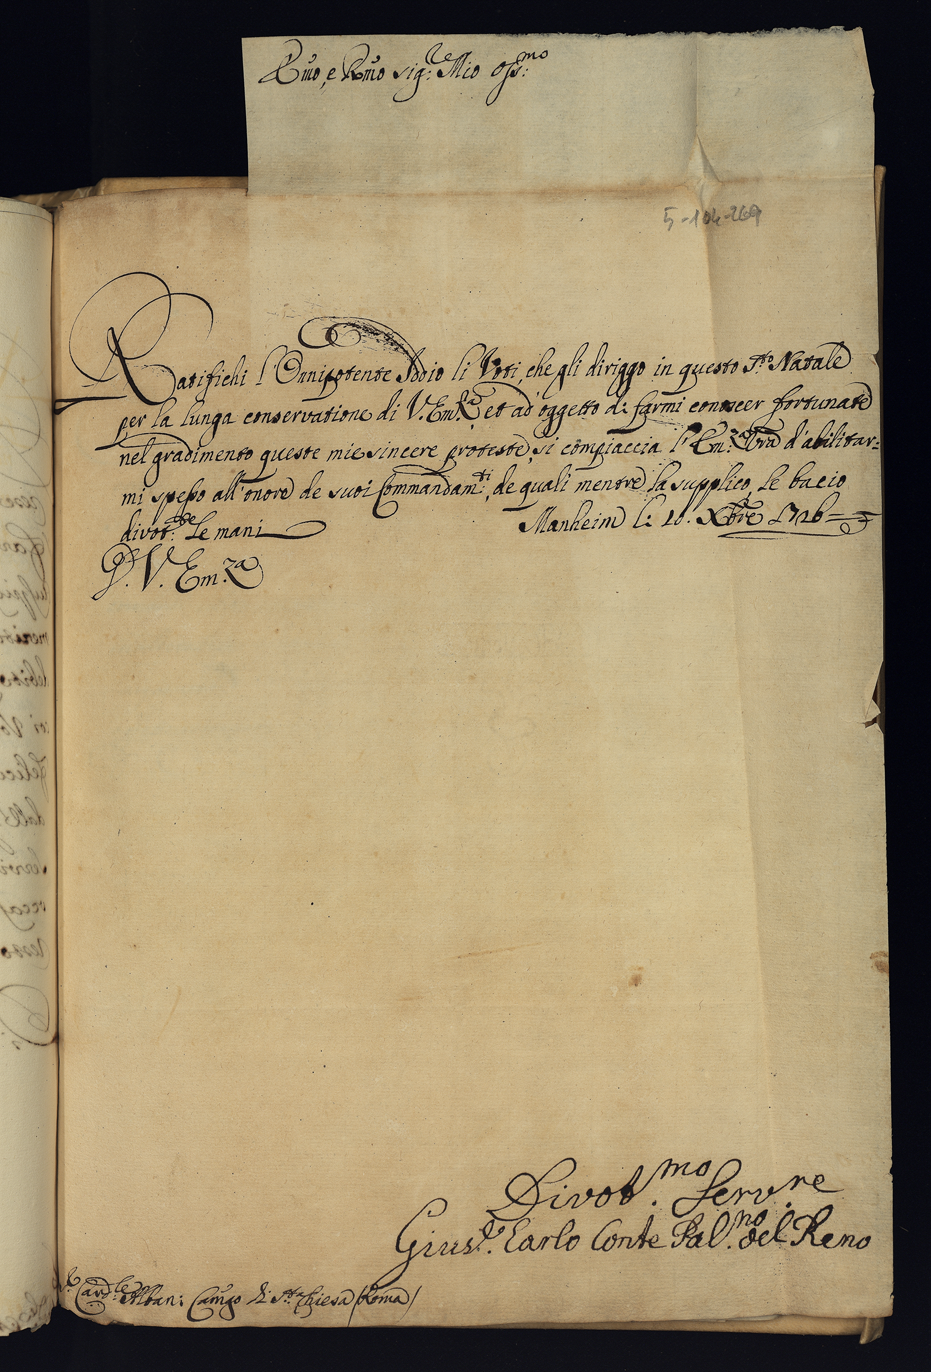 Emo, e Rmo sig:re Mio oss:mo
5-104-269
Ratifichi l'Onnipotente Iddio li Voti, che gli diriggo in questo S:to Natale
per la lunga conservatione di V. Em:za et ad oggetto di farmi conoscer fortunate
nel gradimento queste mie sincere proteste, si compiaccia l'Em:za Vra d'abilitar=
mi spesso all'onore de suoi Commandam:ti, de quali mentre la supplico, le bacio
divot:te le mani
Manheim li 10. Xbre 1726
D. V. Em.za
Divot.mo Serv.re
Gius:e Carlo Conte Pal.no del Reno
Card:le Albani Camgo di S:ta Chiesa (Roma)